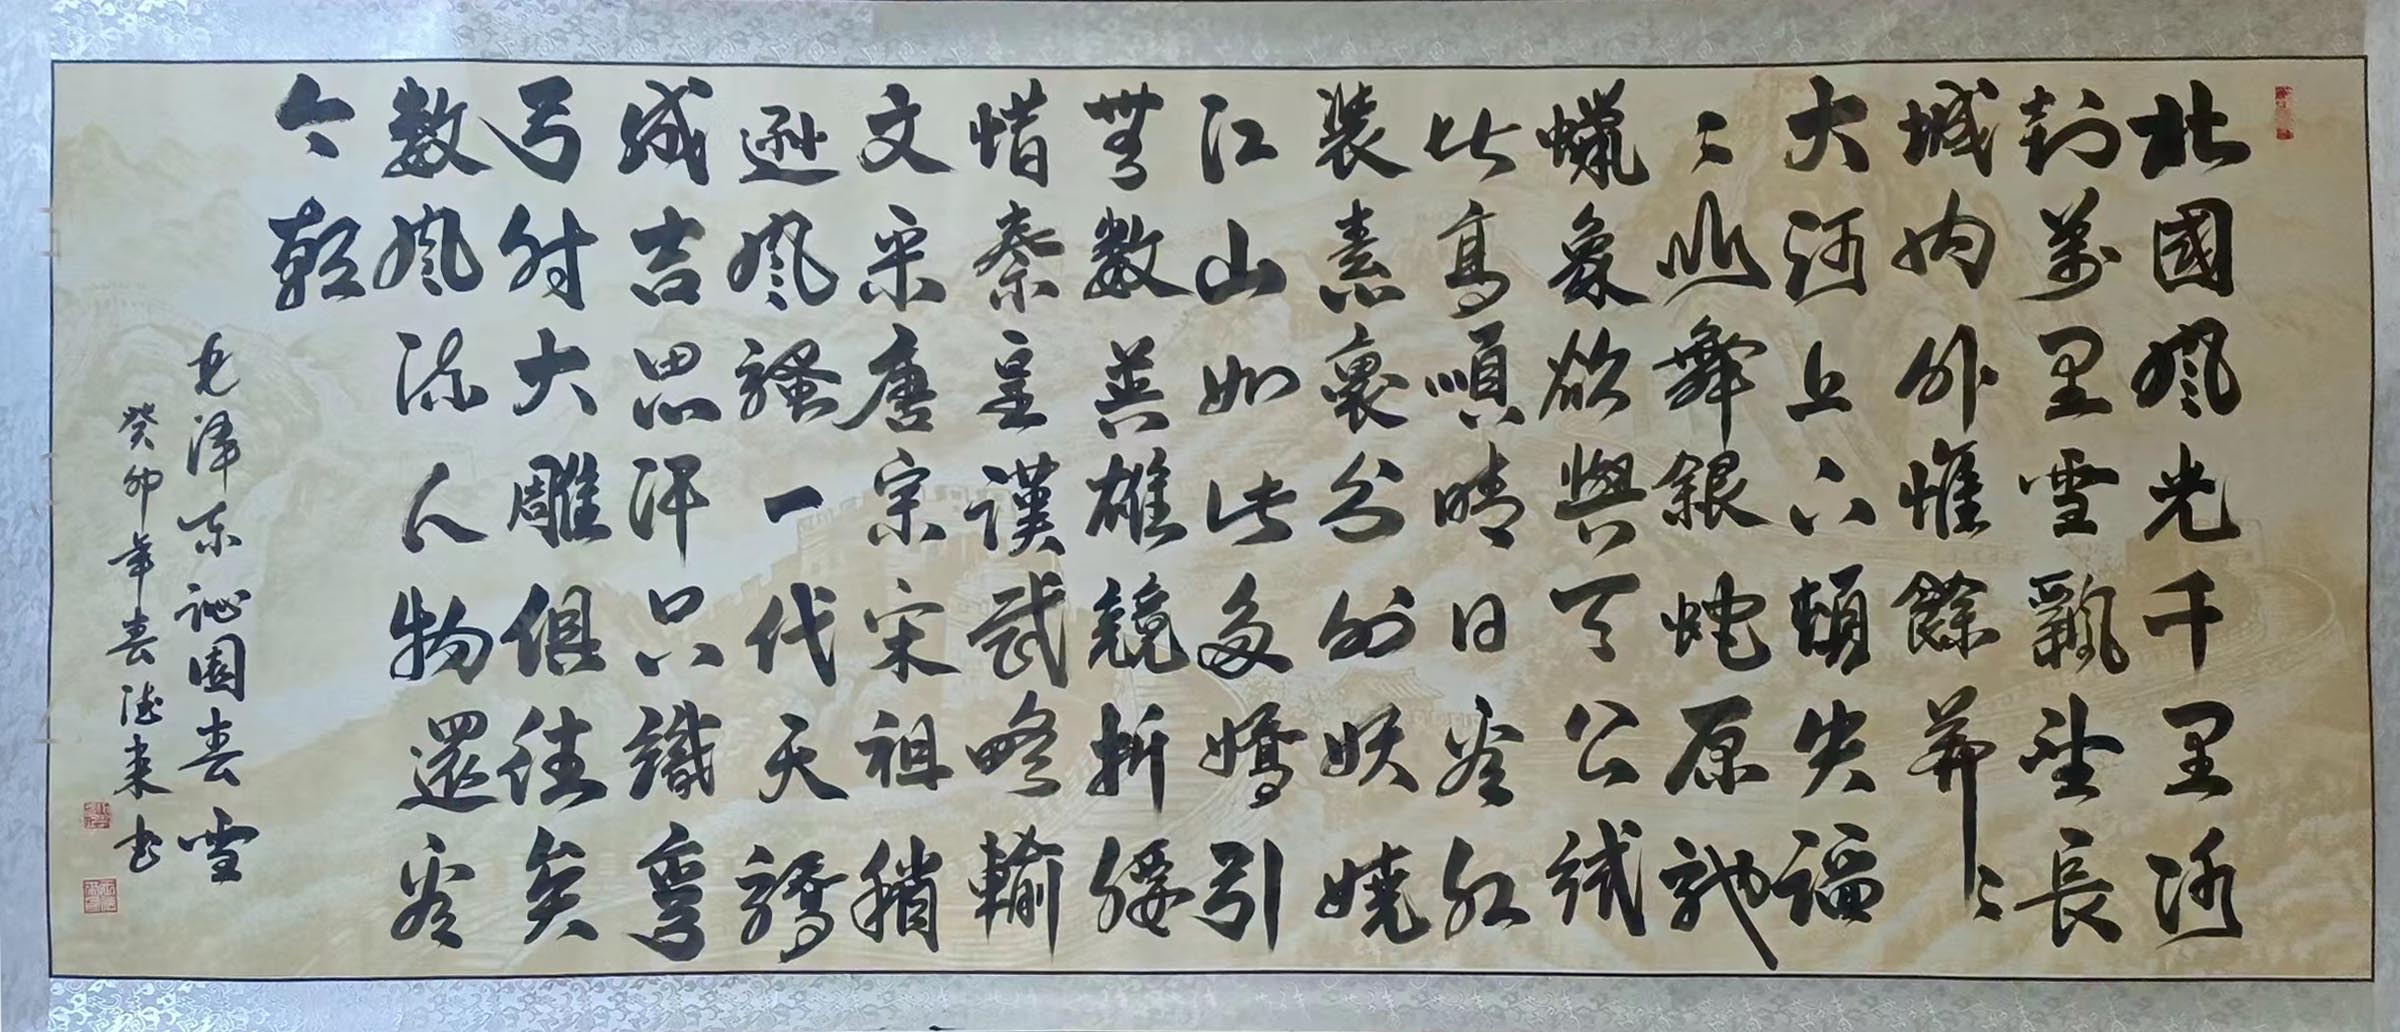 北國風光千里冰
封萬里雪飄望長
城內外惟餘莽〻
大河上下頓失滔
〻山舞銀蛇原馳
蠟象欲與天公試
比高須晴日看紅
裝素裹分外妖嬈
江山如此多嬌引
無數英雄競折腰
惜秦皇漢武略輸
文采唐宗宋祖稍
遜風騷一代天驕
成吉思汗只識彎
弓射大雕俱往矣
數風流人物還看
今朝
毛澤東沁園春雪
癸卯年春德來書